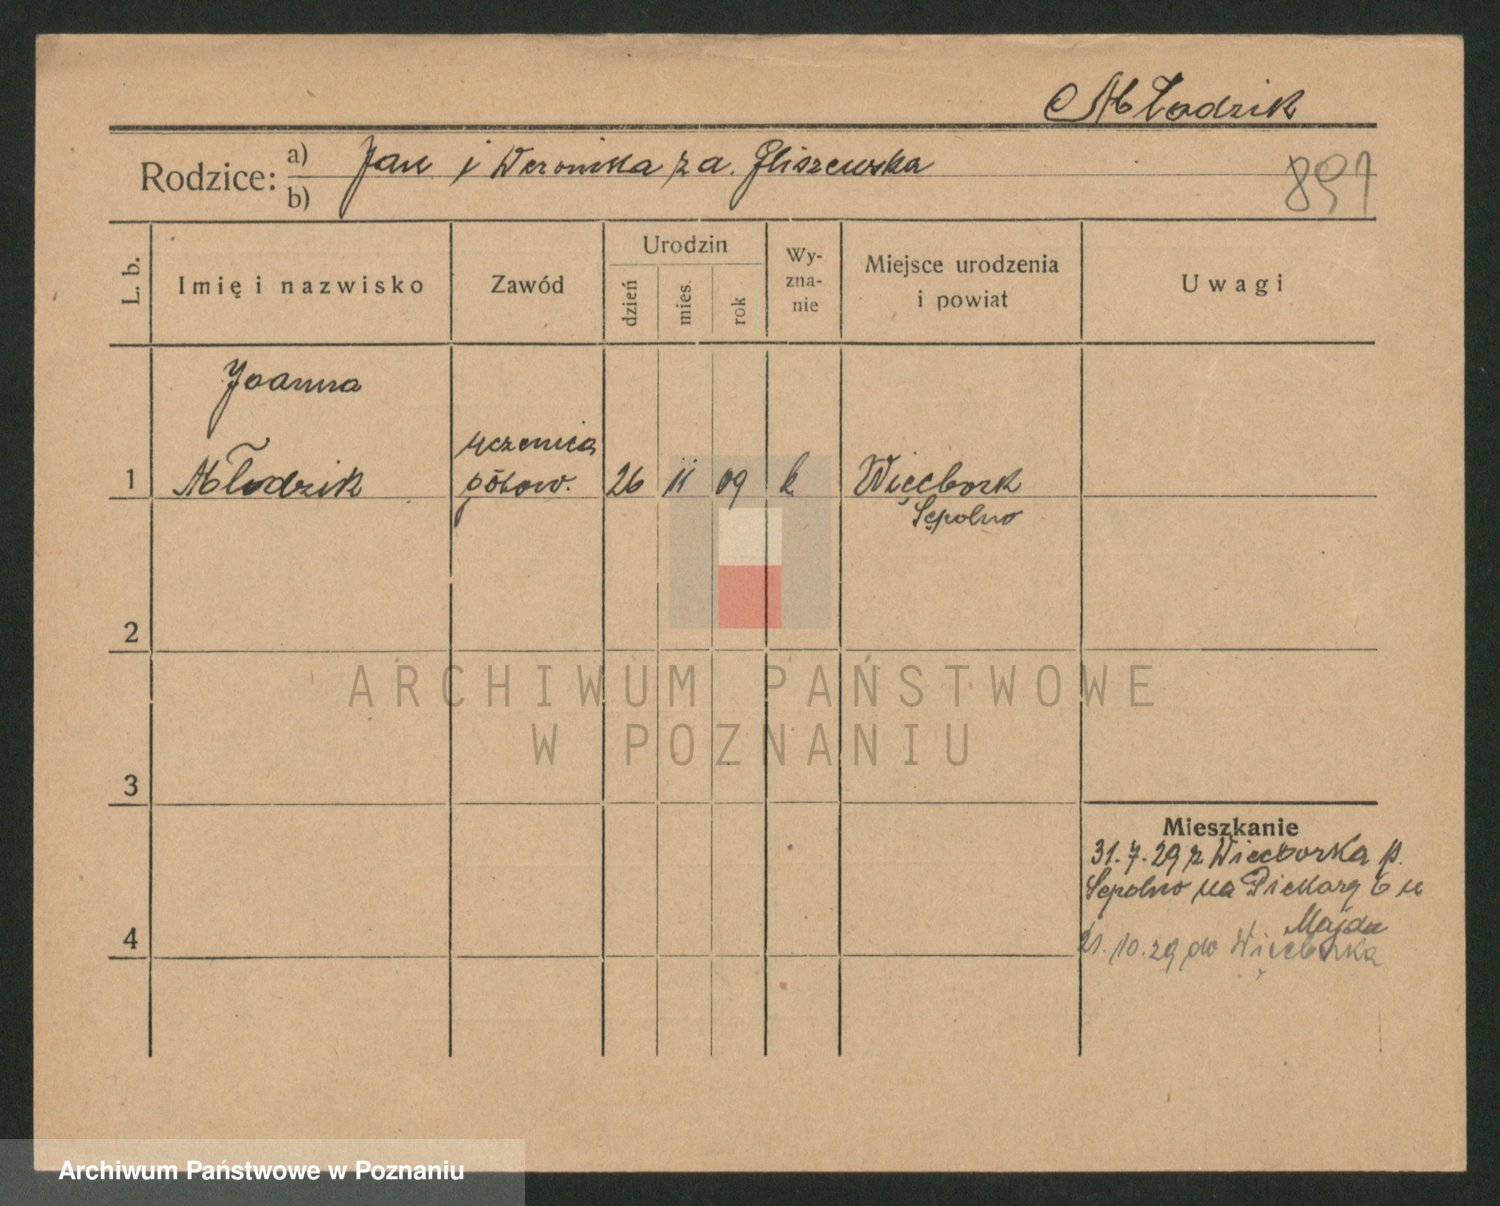 Młodzik
Rodzice: a) Jan i Weronika z d. Gliszewska
b)
891
L. b.
Imię i nazwisko
Zawód
Urodzin
dzień
mies.
rok
Wy-
zna-
nie
Miejsce urodzenia
i powiat
Uwagi
Joanna
uczenica
1 Młodzik położ. 26 11 09 k Więcbork
Sępolno
2
3
4
Mieszkanie
31.7.29 z Wiecborka p.
Sępolno na Piekary 6 u
Majda
21.10.29 do Więcborka
ARCHIWUM PAŃSTWOWE
W POZNANIU
Archiwum Państwowe w Poznaniu